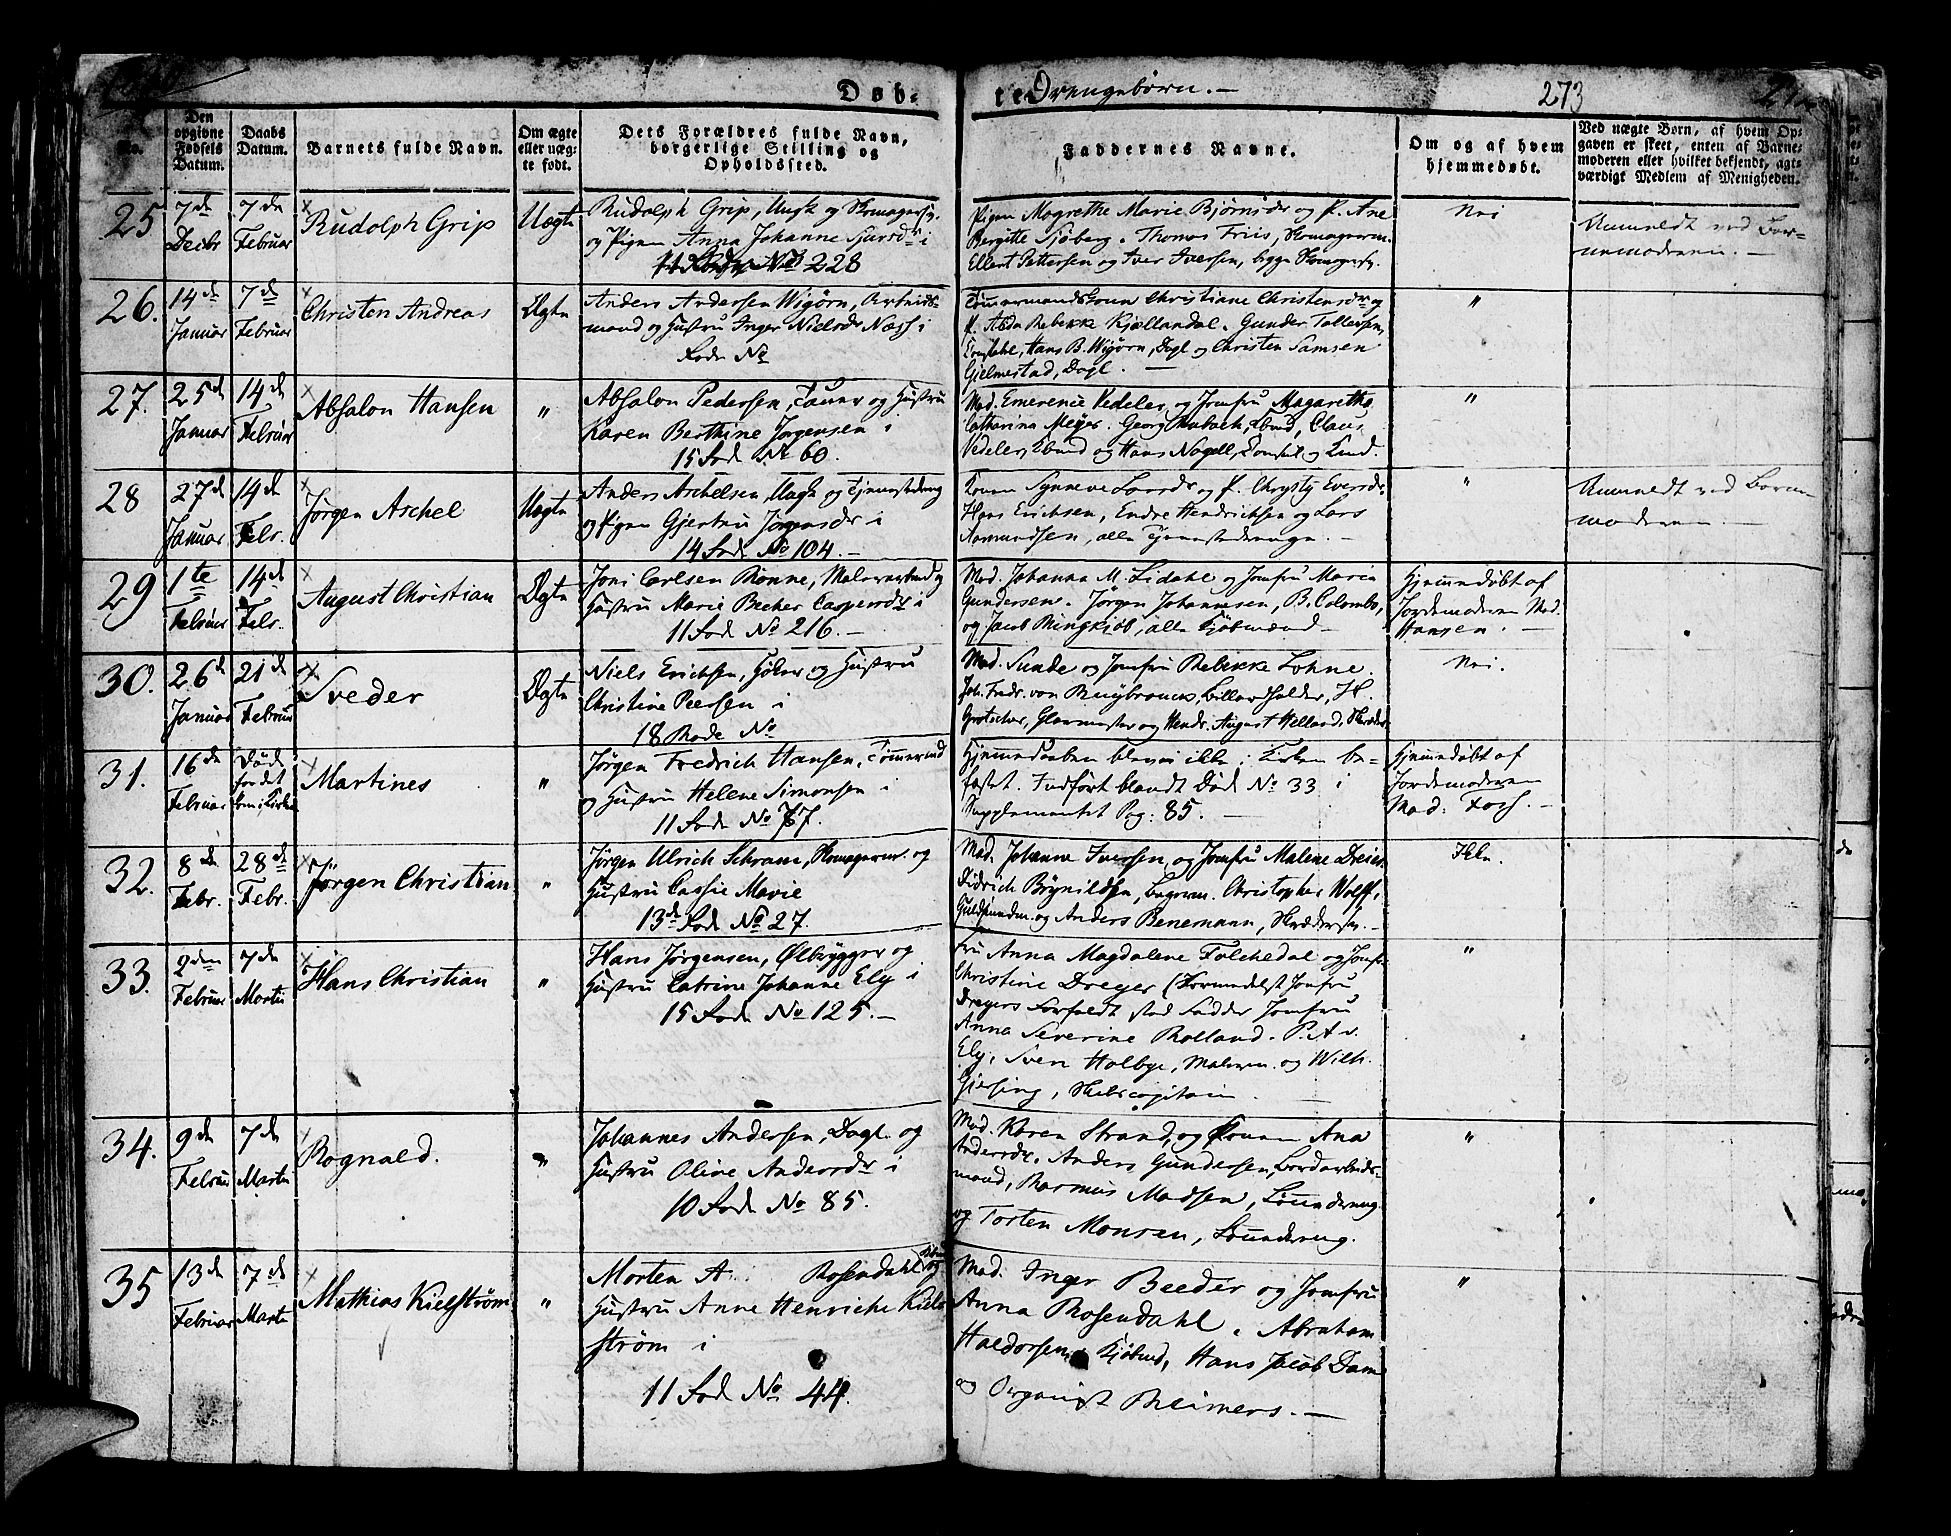 Døb- te Drengebørn. 273
No.
Den opgivne Fødsels Datum.
Daabs Datum.
Barnets fulde Navn.
Om ægte eller uægte født.
Dets Forældres fulde Navn, borgerlige Stilling og Opholdssted.
Faddernes Navne.
Om og af hvem hjemmedøbt.
Ved uægte Børn, af hvem Opgaven er skeet, enten af Barnemoderen eller hvilket bekjendt, agtværdigt Medlem af Menigheden.
25 7de Decbr 7de Februar Rudolph Grip Uægte
Rudolph Grip, Ungk og Skomagersv.
og Pigen Anna Johanne Sjursdr i
No 228
Pigen Magrethe Marie Bjørnsdr og P. Ane
Bergitte Sjøberg. Thomas Friis, Skomagerm.
Ellert Pettersen og Iver Iversen, begge Skomagersv.
Nei
Anmeldt ved Bar-
nemoderen. —
26. 14de Januar 7de Februar Christen Andreas Ægte
Anders Andersen Wigørn, Arbeids-
mand og Hustru Inger Nielsdr Næss i
Rode No
Tømmermandskone Christiane Christensdr og
P. Abda Rebekke Kjellandal. Gunder Tollefsen,
Hans B. Wigørn, Dagl og Christen Samsen
Gjelmestad, Dagl. —
"
27. 25de Januar 14de Februar Absalon Hansen "
Absalon Pedersen, og Hustru
Karen Berthine Jørgensen i
15 Rode No 60.
Mad. Emerence Vedeler og Jomfru Magarethe
Catharina Meyer. Georg Claus
Vedeler, og Hans Nagell, Consul og
"
28 27de Januar 14de Febr. Jørgen Aschel Uægte
Anders Aschelsen, Ungk og Tjenestedreng
og Pigen Gjertru Jørgensdr i
14 Rode No 104. —
Konen Synneve Larsdr og P. Chrysty Eversdr.
Hans Erichsen, Endre Hendrichsen og Lars
Aamundsen, alle Tjenestedrenge. —
"
Anmeldt ved Barne-
moderen. —
29 1te Februar 14de Febr. August Christian Ægte
Joni Carlsen Rønne, Malersvend og
Hustru Marie Becher Caspersdr i
11 Rode No 216. —
Mad. Johanna M. Lidahl og Jomfru Maria
Gundersen. Jørgen Johannesen, B. Colombo,
og Jacob Ringkjøb, alle Kjøbmænd —
Hjemmedøbt af
Jordemoderen Mad.
Hansen. —
30. 26de Januar 21de Februar Sveder Ægte
Niels Erichsen, og Hustru
Christine Peersen i
18 Rode No
Mad. Sunde og Jomfru Rebekke Lohne.
Joh. Fredr. von Billardholder, H.
Glarmester og Hendr. August Helland, Skræder
Nei.
31. 16de Februar Døde før det kom i Kirke Martines "
Jørgen Fredrich Hansen, Tømmermd
og Hustru Helene Simonsen i
11 Rode No 77.
Hjemmedaaben blev ikke i Kirken be-
fæstet. Indført blandt Døde No 33 i
Supplementet Pag: 85. —
Hjemmedøbt af
Jordemoderen
Mad: Foss. —
32. 8de Febr. 28de Febr. Jørgen Christian "
Jørgen Ulrich Schram, Skomagerm. og
Hustru Cassie Marie
13de Rode No 27.
Mad. Johanne Iversen, og Jomfru Malene Dreier.
Didrich Brynildsen, Bagerm. Christopher Wolff,
Guldsmedm. og Anders Benemann, Skrædersv. —
Ikke.
33. 2den Februar 7de Martii Hans Christian "
Hans Jørgensen, Ølbrygger og
Hustru Catrine Johanne Ely i
15 Rode No 125. —
Fru Anna Magdalene Folchedal og Jomfr.
Christine Dreyer (Formedelst Jomfru
Dreyers Forfald stod Fadder Jomfru
Anna Severine Rolland. P. A. v.
Ely, Sven Holbye, Malerm. og Wilh.
Gjersing, Skibscapitain. —
"
34. 9de Februar 7de Martii Rognald. "
Johannes Andersen, Dagl. og
Hustru Oline Andersdr i
10 Rode No 85.
Mad. Karen Strand, og Konen Ana
Andersdr. Anders Gundersen, Bordarbeids-
mand, Rasmus Madsen,
og Torsten Monsen,
"
35 13de Februar 7de Martii Mathias Kielstrøm "
Morten A. Rosendahl og
Hustru Anne Henriche Kiel-
strøm i
11 Rode No 44.
Mad. Inger Beeder og Jomfru
Anna Rosendahl. Abraham
Haldorsen, Kjøbmd, Hans Jacob Dam
og Organist Reimers. —
"